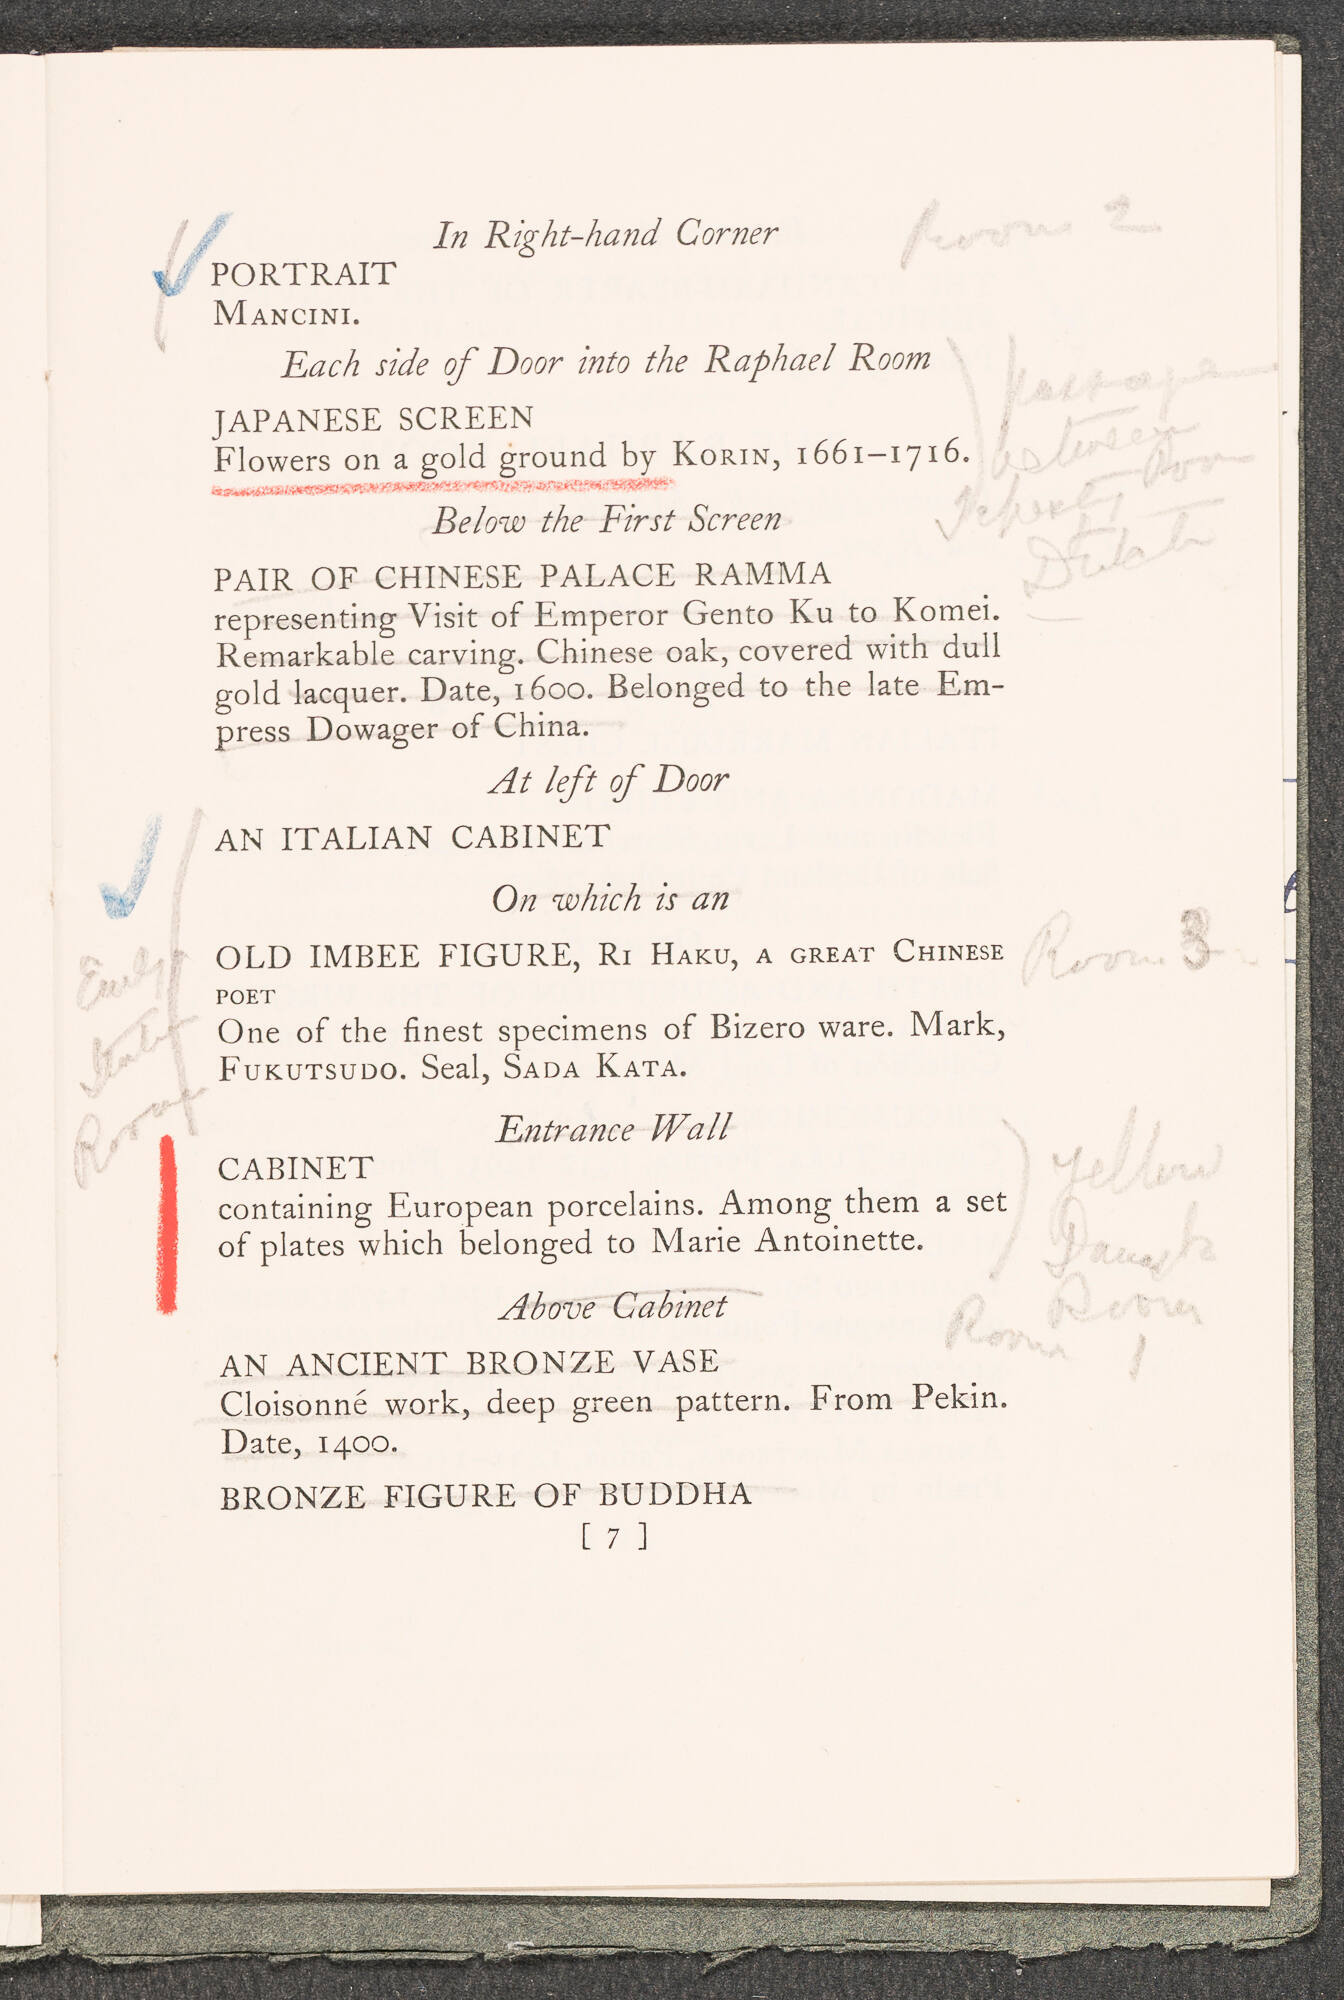 In Right-hand Corner
Room 2
PORTRAIT
MANCINI.
Each side of Door into the Raphael Room
JAPANESE SCREEN
Flowers on a gold ground by KORIN, 1661–1716.
Passage
between
Room
Dutch
Below the First Screen
PAIR OF CHINESE PALACE RAMMA
representing Visit of Emperor Gento Ku to Komei.
Remarkable carving. Chinese oak, covered with dull
gold lacquer. Date, 1600. Belonged to the late Em-
press Dowager of China.
At left of Door
AN ITALIAN CABINET
On which is an
OLD IMBEE FIGURE, RI HAKU, A GREAT CHINESE
POET
One of the finest specimens of Bizero ware. Mark,
FUKUTSUDO. Seal, SADA KATA.
Early
Italian
Room
Room 3
Entrance Wall
CABINET
containing European porcelains. Among them a set
of plates which belonged to Marie Antoinette.
Yellow
Damask
Room
Room 1
Above Cabinet
AN ANCIENT BRONZE VASE
Cloisonné work, deep green pattern. From Pekin.
Date, 1400.
BRONZE FIGURE OF BUDDHA
[ 7 ]